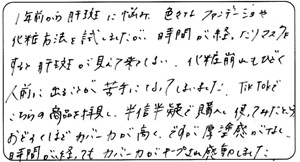 1年前から肝斑に悩み、色々なファンデーションや
化粧方法を試しましたが、時間が経ったりマスクを
すると肝斑が見えて来てしまい、化粧崩れもひどく
人前に出ることが苦手になってしまいました。TikTokで
こちらの商品を拝見し、半信半疑で購入し使ってみたところ
おどろくほどカバー力が高く、ですが厚塗感がなく、
時間が経ってもカバー力がキープされ感動しました